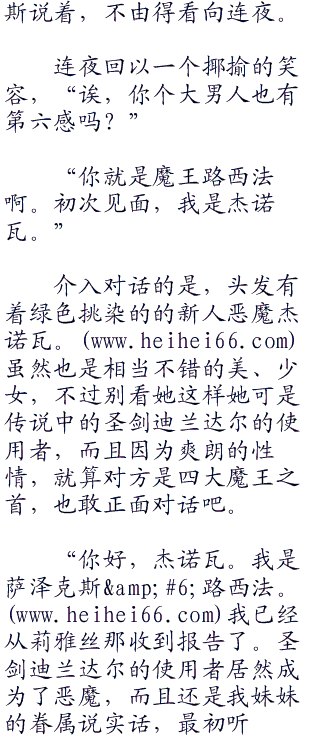 斯说着，不由得看向连夜。
连夜回以一个揶揄的笑
容，“诶，你个大男人也有
第六感吗？”
“你就是魔王路西法
啊。初次见面，我是杰诺
瓦。”
介入对话的是，头发有
着绿色挑染的的新人恶魔杰
诺瓦。(www.heihei66.com)
虽然也是相当不错的美、少
女，不过别看她这样她可是
传说中的圣剑迪兰达尔的使
用者，而且因为爽朗的性
情，就算对方是四大魔王之
首，也敢正面对话吧。
“你好，杰诺瓦。我是
萨泽克斯&amp;#6;路西法。
(www.heihei66.com)我已经
从莉雅丝那收到报告了。圣
剑迪兰达尔的使用者居然成
为了恶魔，而且还是我妹妹
的眷属说实话，最初听